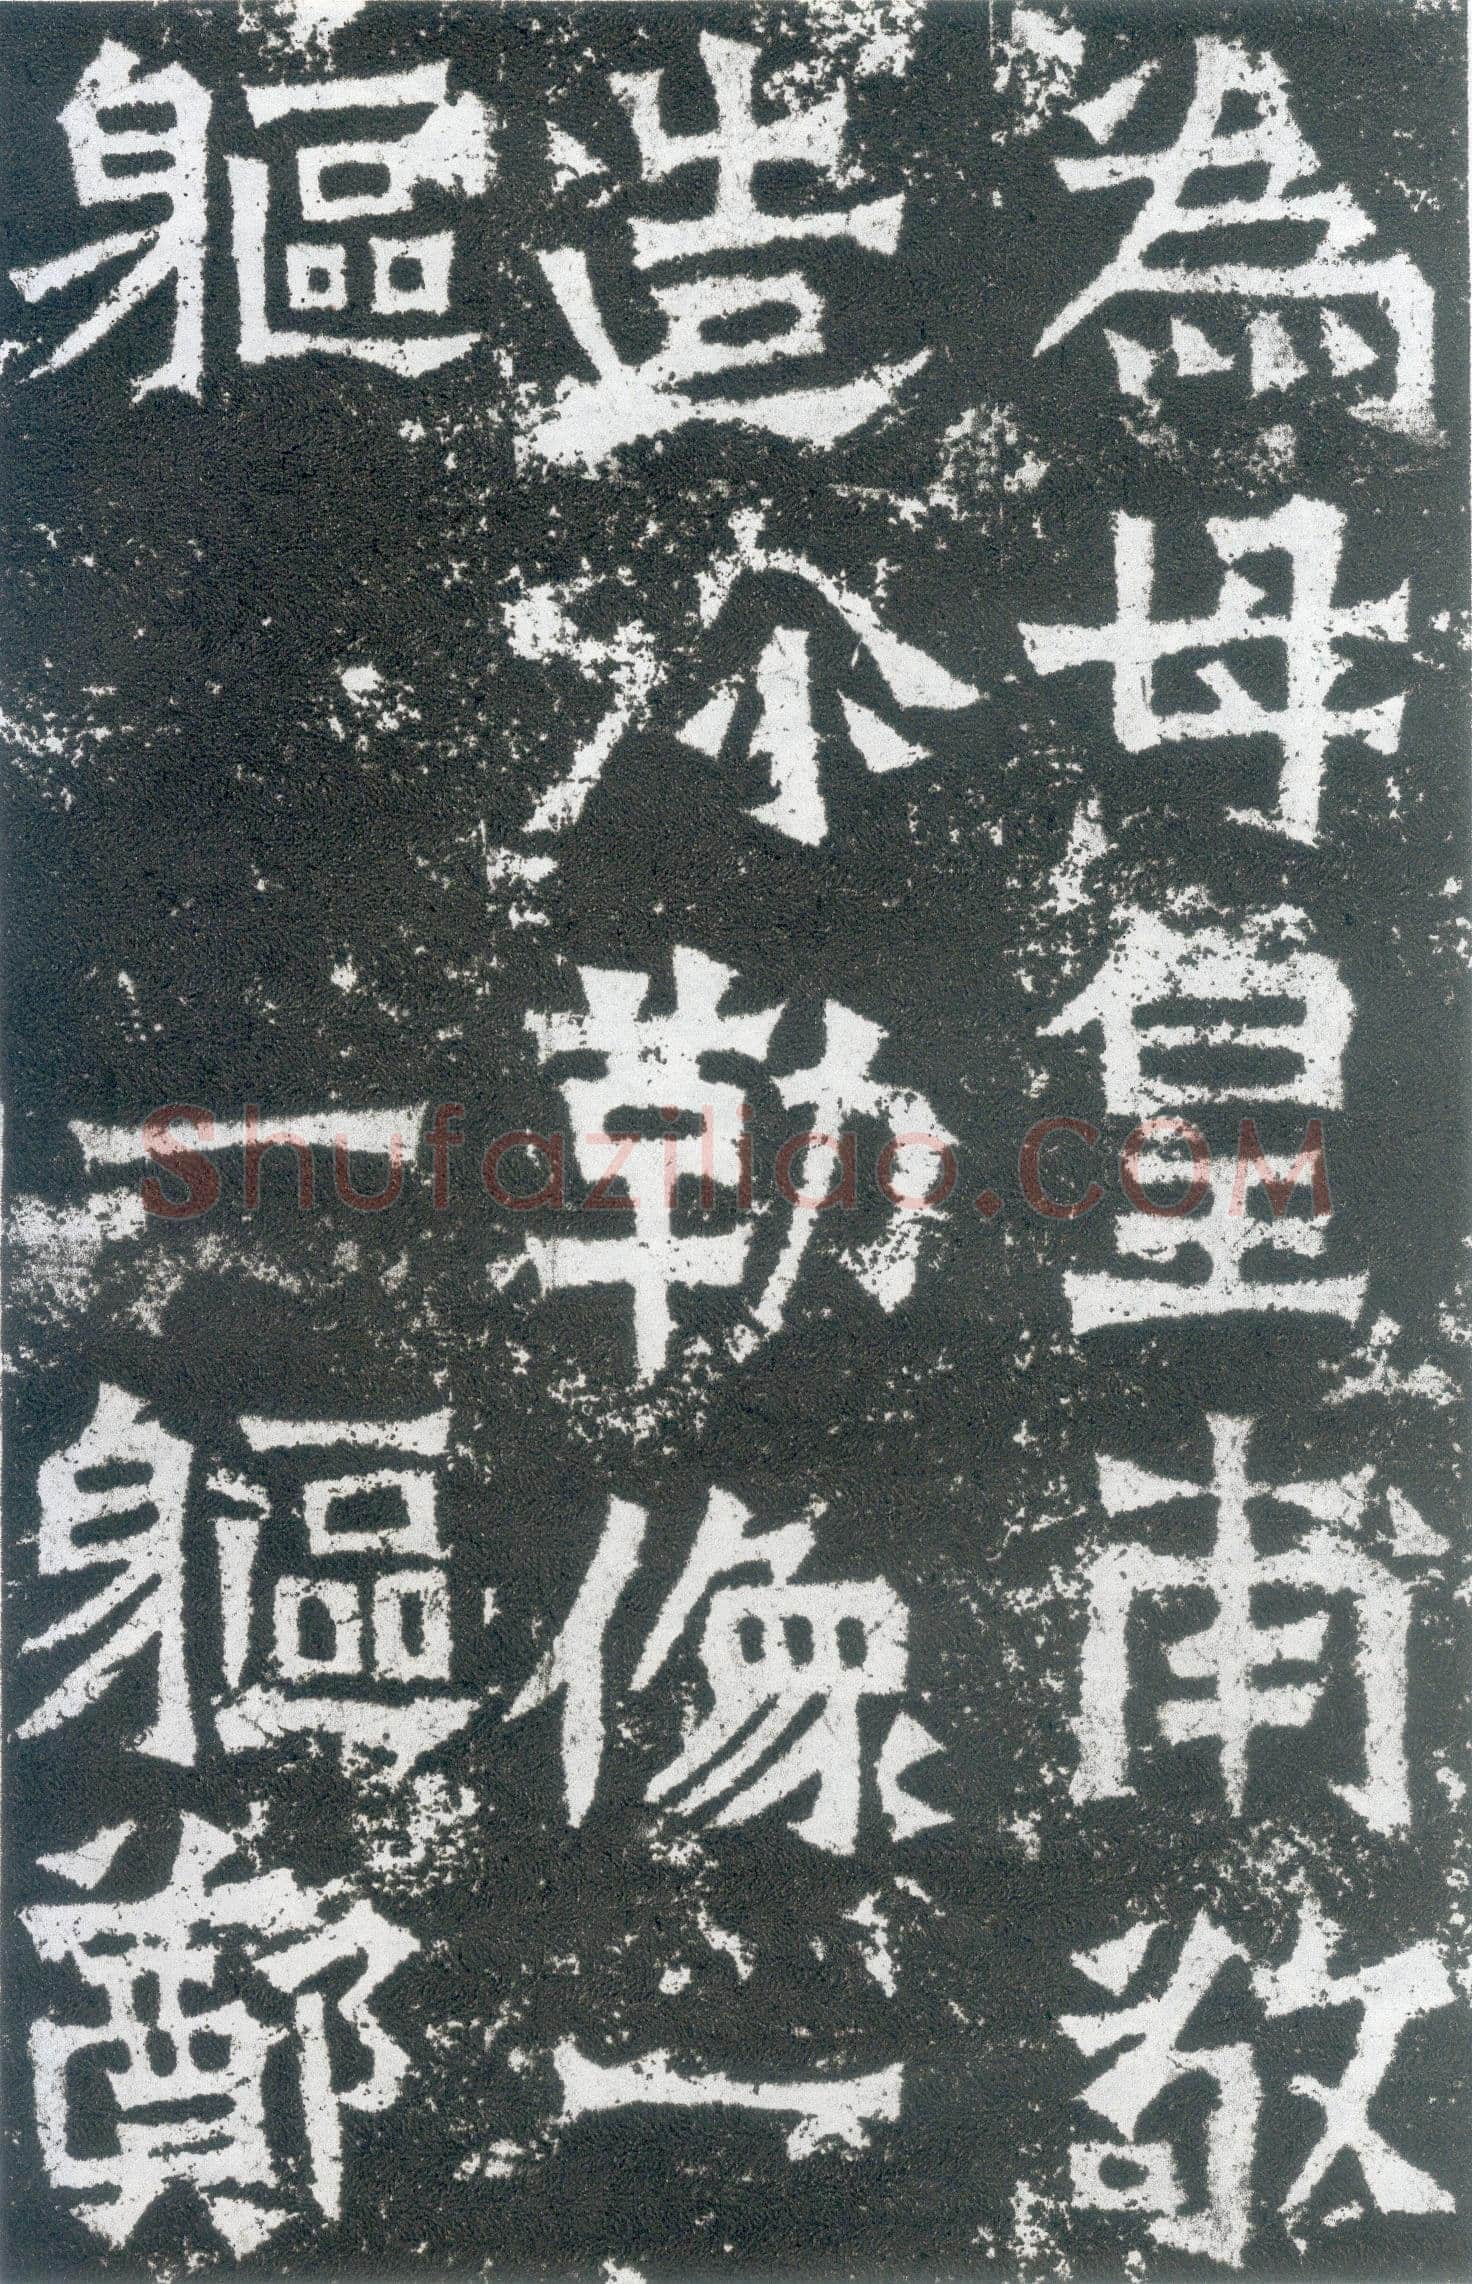 為母皇甫敬
造弥勒像一
軀 一軀鄭
Shufaziliao.COM